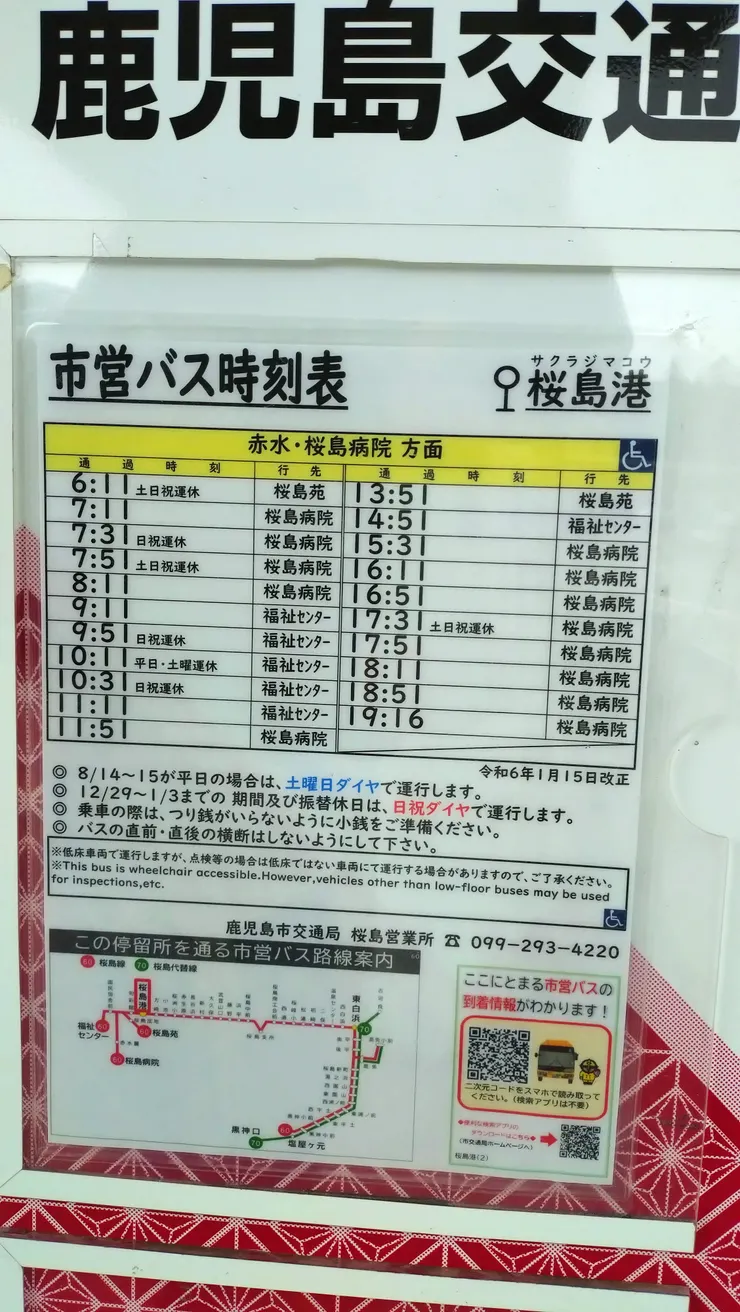 鹿児島交通
市営バス時刻表
サクラジマコウ
桜島港
赤水・桜島病院 方面
通 過 時 刻 行 先 通 過 時 刻 行 先
6:11 土日祝運休 桜島苑 13:51 桜島苑
7:11 桜島病院 14:51 福祉センター
7:31 日祝運休 桜島病院 15:31 桜島病院
7:51 土日祝運休 桜島病院 16:11 桜島病院
8:11 桜島病院 16:51 桜島病院
9:11 福祉センター 17:31 土日祝運休 桜島病院
9:51 日祝運休 福祉センター 17:51 桜島病院
10:11 平日・土曜運休 福祉センター 18:11 桜島病院
10:31 日祝運休 福祉センター 18:51 桜島病院
11:11 福祉センター 19:16 桜島病院
11:51 桜島病院
令和6年1月15日改正
◎ 8/14～15が平日の場合は、土曜日ダイヤで運行します。
◎ 12/29～1/3までの 期間及び振替休日は、日祝ダイヤで運行します。
◎ 乗車の際は、つり銭がいらないように小銭をご準備ください。
◎ バスの直前・直後の横断はしないようにして下さい。
※低床車両で運行しますが、点検等の場合は低床ではない車両にて運行する場合がありますので、ご了承ください。
※This bus is wheelchair accessible.However,vehicles other than low-floor buses may be used
for inspections,etc.
鹿児島市交通局 桜島営業所 ☎ 099-293-4220
この停留所を通る市営バス路線案内
60 桜島線 70 桜島代替線
桜島港
東白浜
70
福祉センター 60
60 桜島苑
60 桜島病院
黒神口
70
60
塩屋ヶ元
ここにとまる市営バスの
到着情報がわかります！
二次元コードをスマホで読み取って
ください。（検索アプリは不要）
◆便利な検索アプリの
ダウンロードはこちら◆
(市交通局ホームページへ)
桜島港(2)